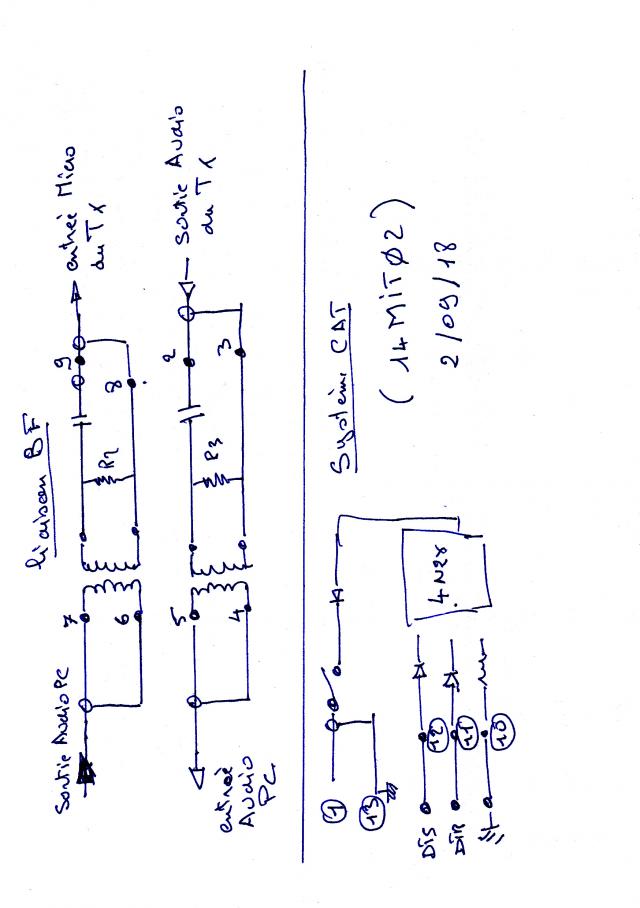 liaison BF
Sortie Audio PC
7
6
R2
9
8
entrée Micro
du Tx
entrée
Audio
PC
5
4
R3
2
3
Sortie Audio
du Tx
Système CAT
(14MITØ2)
2/09/18
1
13
DTS
12
DTR
11
10